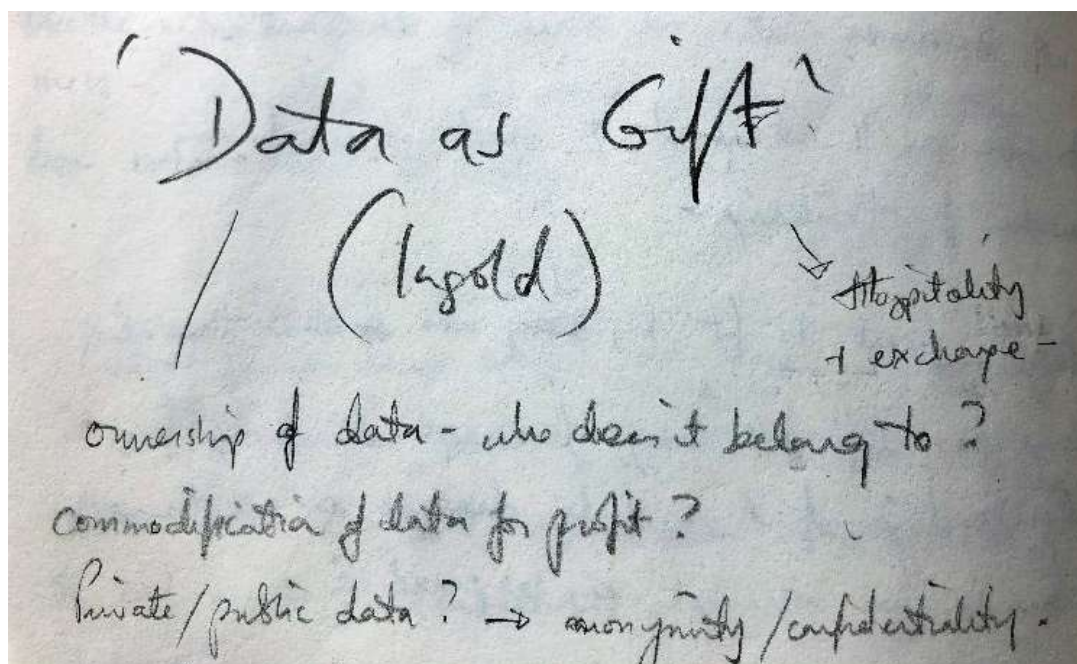 'Data as Gift'
(Ingold)
Hospitality
+ exchange -
ownership of data - who does it belong to?
commodification of data for profit?
Private/public data? → anonymity/confidentiality.